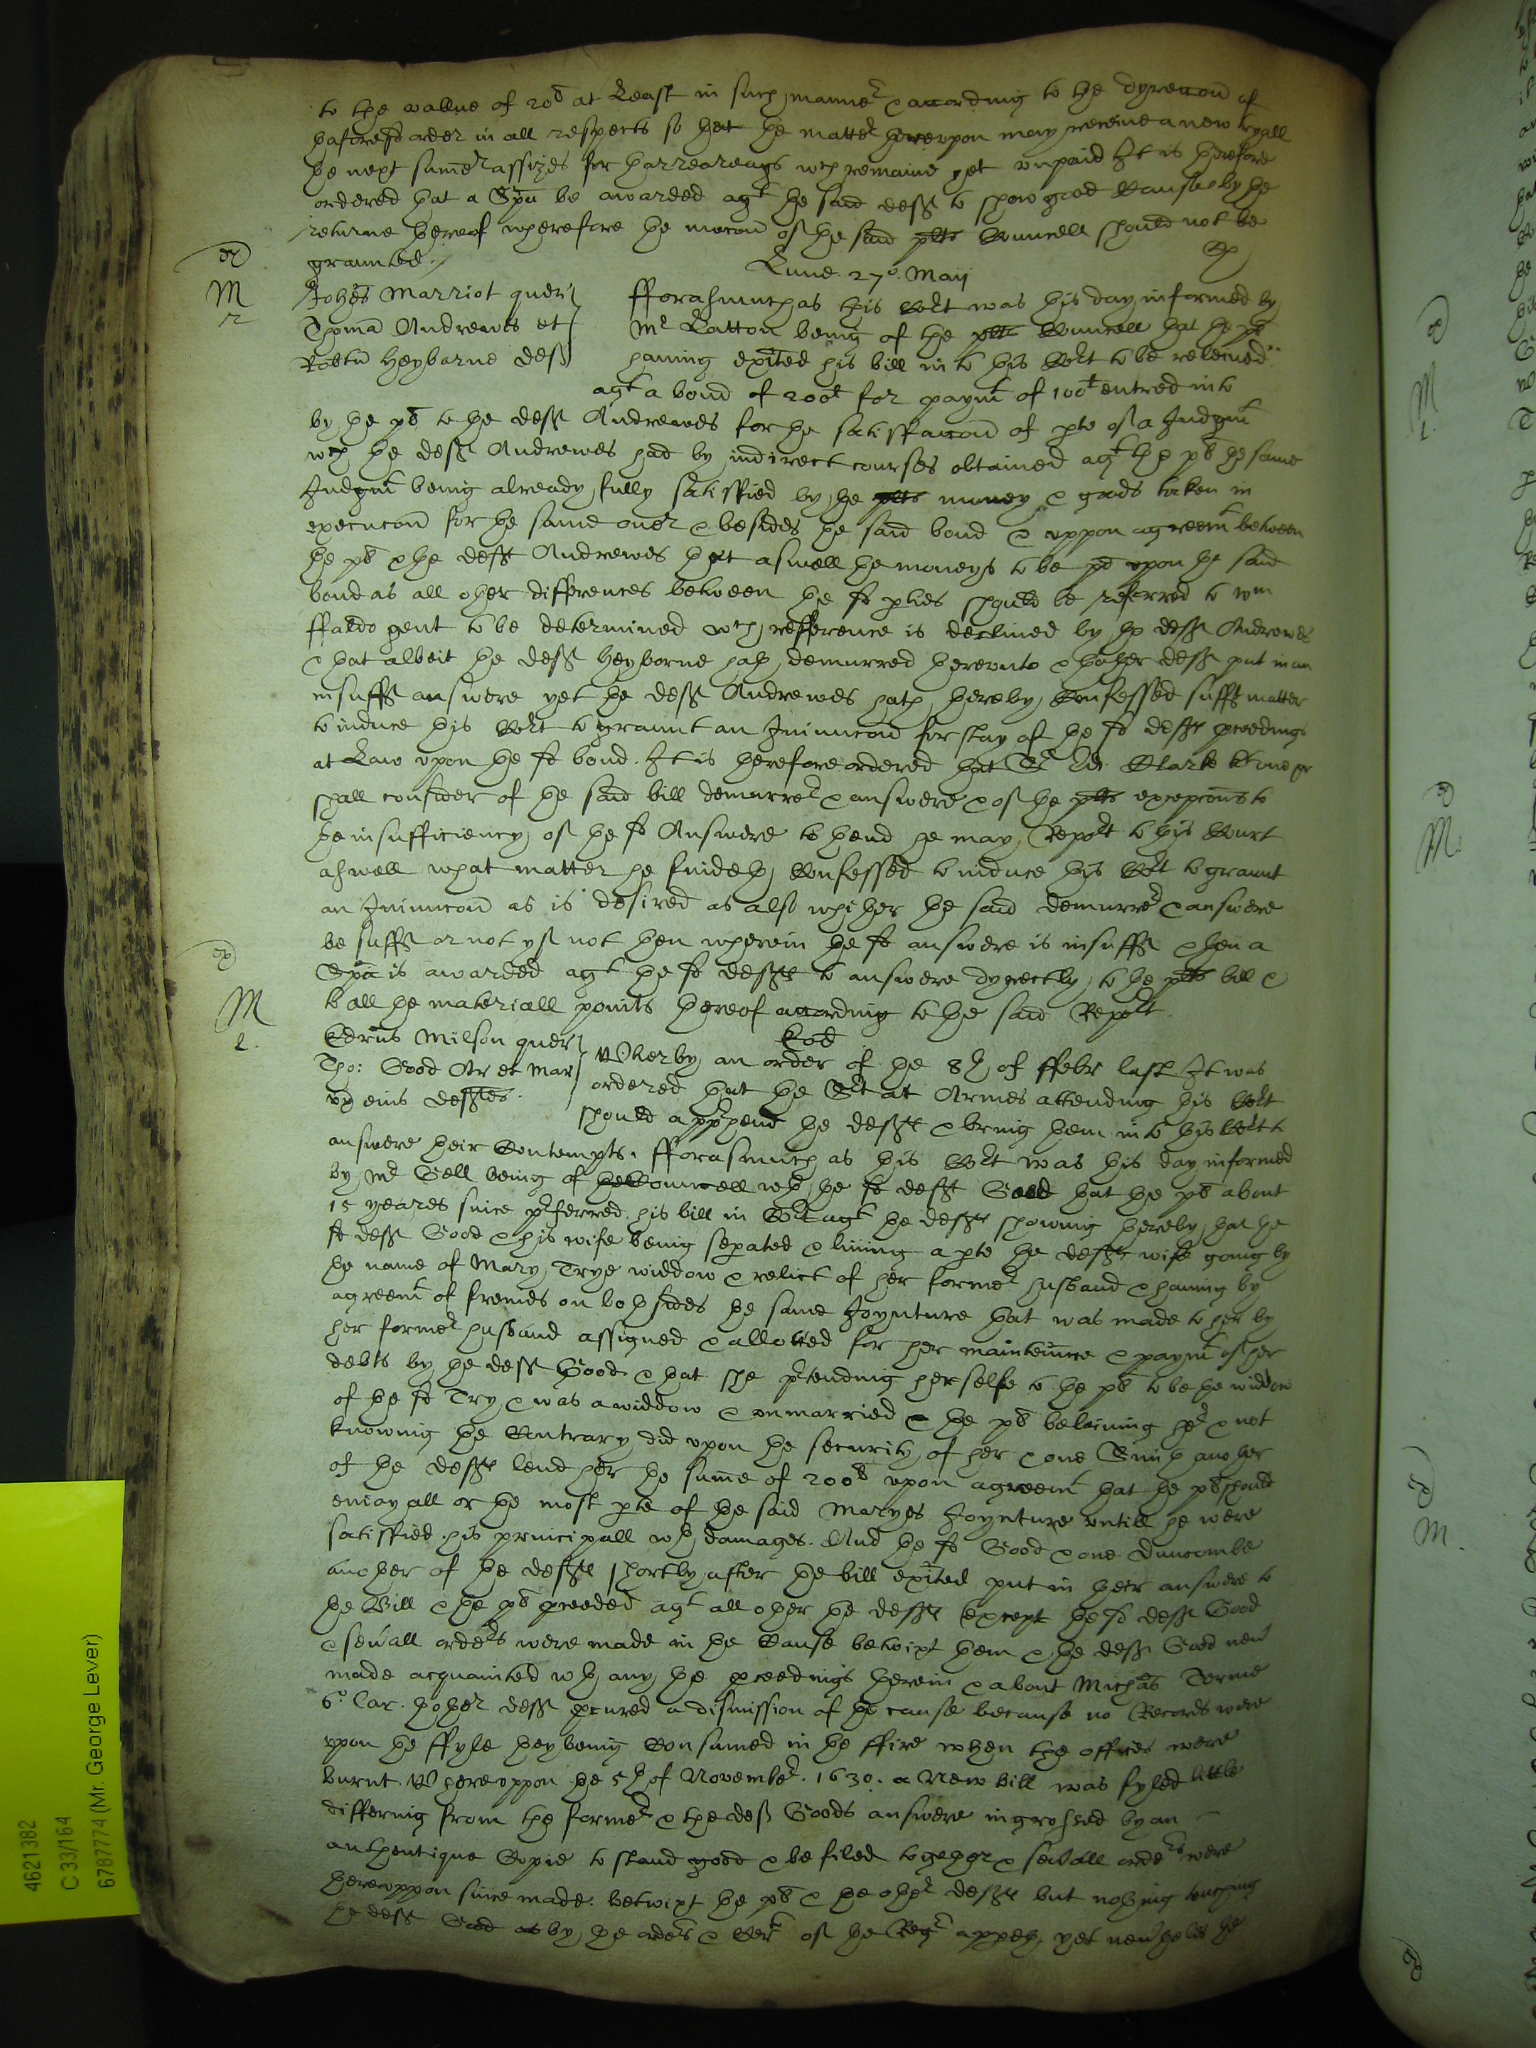 to the vallue of 20s at Least in such manner & according to the dyreccon of
thaforesd order in all respects so that the matter thereupon may receive a new tryall
the next sumer assizes for tharrearages wch remaine yet unpaid It is therefore
ordered that a Spa be awarded agt the said defts to shew good Cause by the
returne thereof wherefore the mocon of the said plts Councell should not be
graunted
Lune 27o Maij
Johes Marriot quer
Thoma Andrewes et
Robtu Heyborne deft
fforasmuch as this Cort was this day informed by
Mr Latton being of the plts Councell that the pt
having exited his bill in to this Cort to be releived
agt a bond of 200l for paymt of 100l entred into
by the pt to the deft Andrewes for the satisfaccon of pte of a Judgmt
wch the deft Andrewes had by indirect courses obtained agt the pt the same
Judgmt being already fully satisfied by the plts money & goods taken in
execucon for the same over & besides the said bond & uppon agreemt between
the pt & the deft Andrewes that aswell the moneys to be pd upon the said
bond as all other diffrences between the sd pties should be referred to Wm
ffaldo gent to be determined wch refference is declined by the deft Andrewes
& that albeit the deft Heyborne hath demurred thereunto & thother deft put in an
insufft answere yet the deft Andrewes hath thereby Confessed sufft matter
to induce this Cort to graunt an Iniunccon for stay of the sd defts pceedings
at Law upon the sd bond. It is therefore ordered that Sr Clarke
shall consider of the said bill demurrer & answere & of the plts excepcons to
the insufficiency of the sd Answere to thend he may Report to this Court
aswell what matter he findeth Confessed to induce this Cort to graunt
an Iniunccon as is desired as also whether the said demurrer & answere
be sufft or not yf not then wherein the sd answere is insufft & then a
Spa is awarded agt the sd defts to answere dyrectly to the plts bill &
to all the materiall points thereof according to the said Report.
Eod
Edrus Milson quer
Tho: Good Ar et Mar
ux eius deftes.
Wherby an order of the 8th of ffebr last It was
ordered that the Srt at Armes attending this Cort
should apprhend the defts & bring them into this Cort to
answere their Contempts. fforasmuch as this Cort was this day informed
by Mr Bell being of the Councell wth the sd deft Good that the pt about
15 yeares since prferred his bill in Cort agt the defts shewing thereby that the
sd deft Good & his wife being sepated & living a pte the defts wife going by
the name of Mary Trye widdow & relict of her former husband & having by
agreemt of freinds on both sides the same Joynture that was made to her by
her former husband assigned & allotted for her maintenance & paymt of her
debts by the deft Good & that she prtending herselfe to the pt to be the widdow
of the sd Try & was a widdow & unmarried & the pt beleiving her & not
knowing the Contrary did upon the security of her & one Smith another
of the defts lend her the sume of 200l upon agreemt that the pt should
enioy all or the most pte of the said Maryes Joynture untill he were
satisfied his principall wth damages. And the sd Good & one Duncombe
another of the defts shortly after the bill exited put in their answere to
the Bill & the pt pceeded agt all other the defts Except the sd deft Good
& sevall orders were made in the Cause betwixt them & the deft Good nevr
made acquainted wth any the pceedings therein & about Michas Terme
6o Car. thother deft pcured a dismission of the cause because no Records were
upon the ffyle they being Consumed in the ffire when the offices were
burnt. Whereuppon the 5th of November. 1630. a New bill was fyled little
differing from the former & the deft Goods answere ingrossed by an
authentique Copie to stand good & be filed together & sevall orders were
thereuppon since made betwixt the pt & the other defts but nothing touching
the deft Good as by the orders & Cert of the Regr appeth yet nevrtheles the
4621382
C 33/164
6787774 (Mr. George Lever)